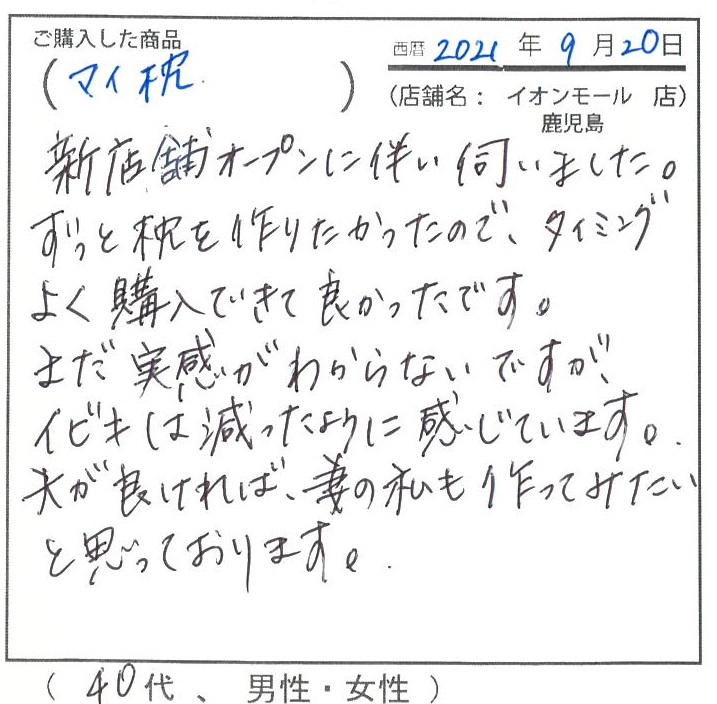 ご購入した商品
西暦 2021 年 9 月 20 日
( マイ枕 )
(店舗名： イオンモール 店)
鹿児島
新店舗オープンに伴い伺いました。
ずっと枕を作りたかったので、タイミング
よく購入できて良かったです。
まだ実感がわからないですが、
イビキは減ったように感じています。
夫が良ければ、妻の私も作ってみたい
と思っております。
( 40代 、 男性・女性 )